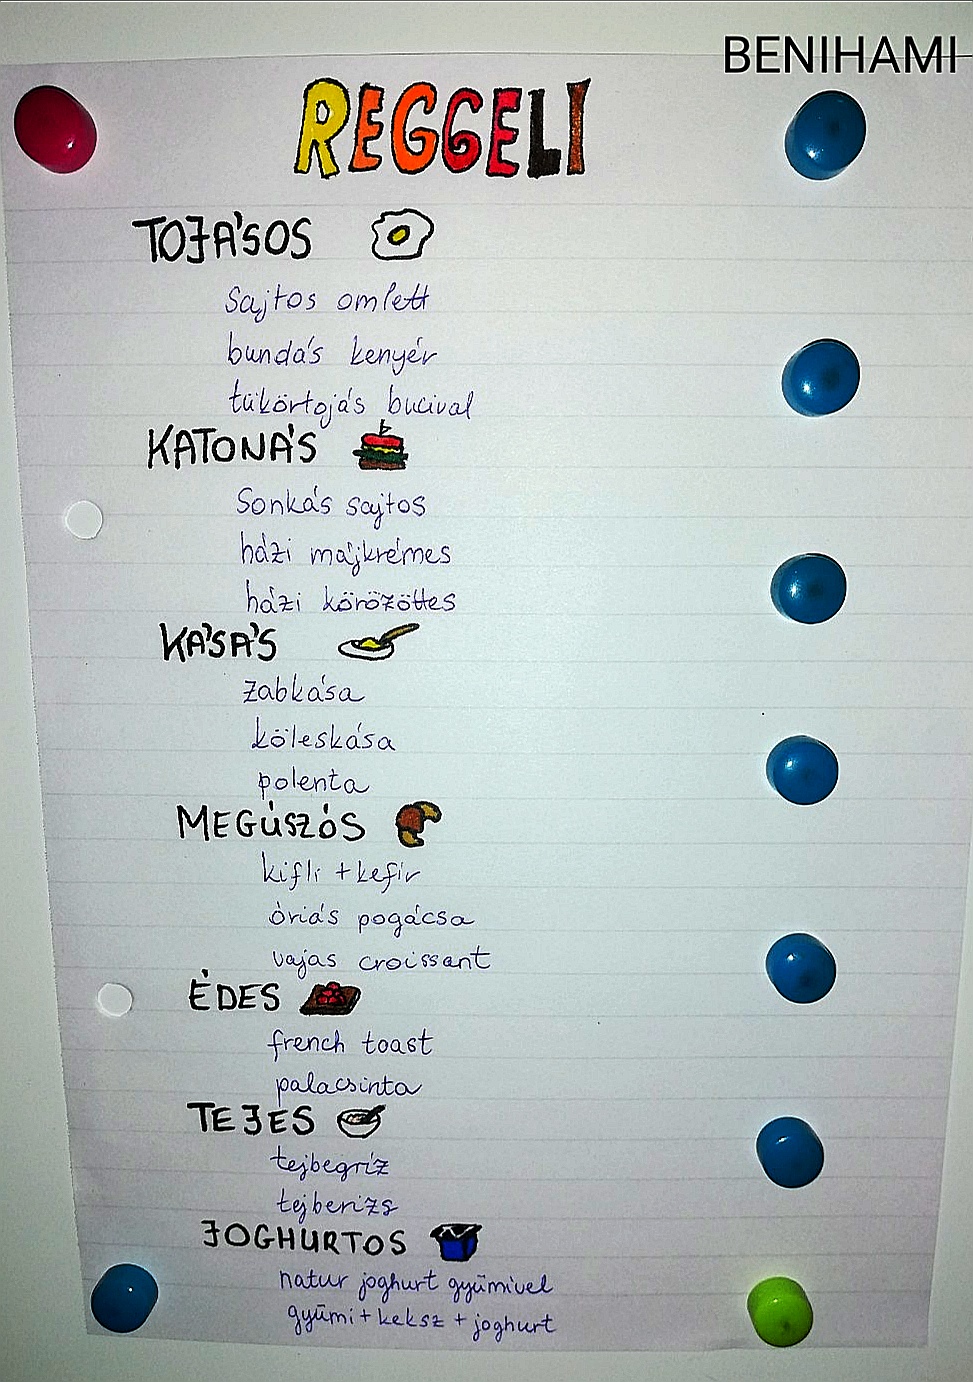 BENIHAMI
REGGELI
TOJÁSOS
Sajtos omlett
bundás kenyér
tükörtojás bucival
KATONÁS
Sonkás sajtos
házi májkrémes
házi körözöttes
KÁSÁS
zabkása
köleskása
polenta
MEGÚSZÓS
kifli + kefir
óriás pogácsa
vajas croissant
ÉDES
french toast
palacsinta
TEJES
tejbegríz
tejberizs
JOGHURTOS
natur joghurt gyümivel
gyümi + keksz + joghurt